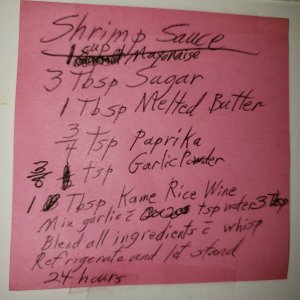 Shrimp Sauce
1 cup Mayonaise
3 Tbsp Sugar
1 Tbsp Melted Butter
3/4 tsp Paprika
3/8 tsp Garlic Powder
1 Tbsp Kame Rice Wine
Mix garlic c̄ tsp water 3 Tbsp
Blend all ingredients c̄ whisp
Refrigerate and let stand
24 hours